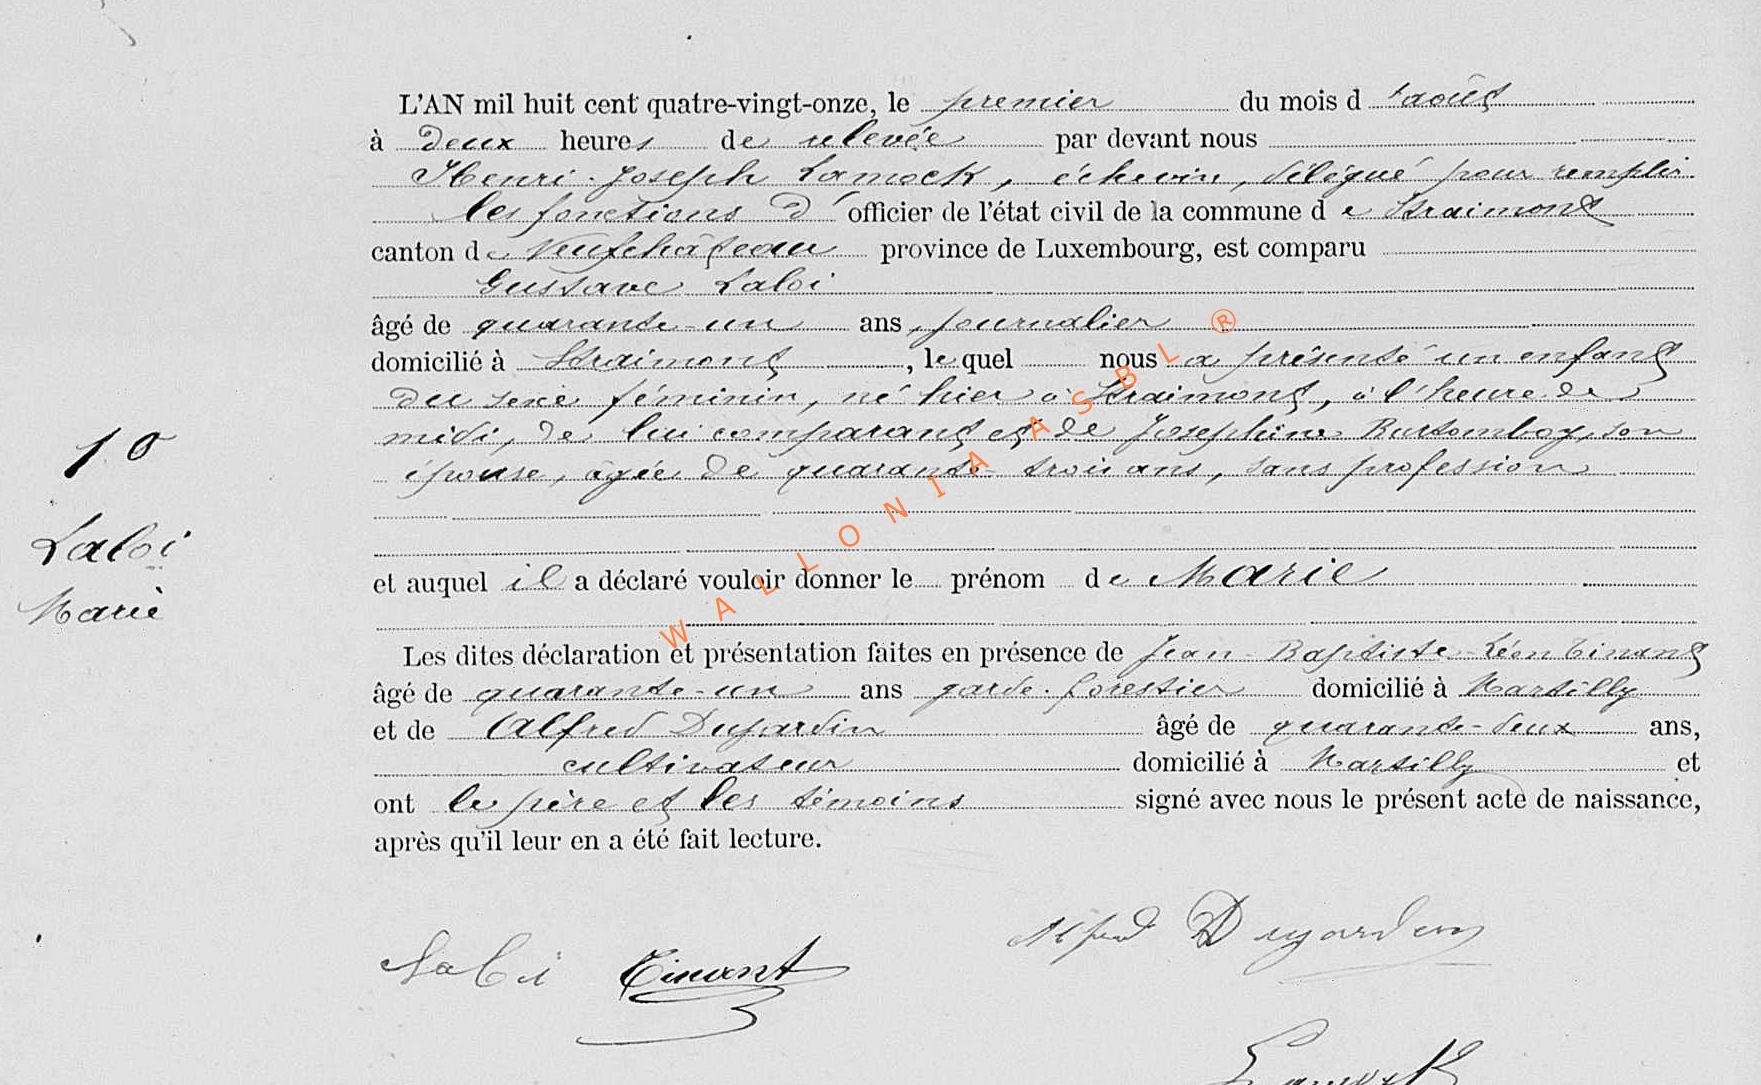 L'AN mil huit cent quatre-vingt-onze, le premier du mois d'août
à deux heures de relevée par devant nous
Henri-Joseph Lamock, échevin, délégué pour remplir
les fonctions d'officier de l'état civil de la commune de Straimont
canton de Neufchâteau province de Luxembourg, est comparu
Gustave Laloi
âgé de quarante-un ans, journalier
domicilié à Straimont, lequel nous a présenté un enfant
du sexe féminin, né hier à Straimont, à l'heure de
midi, de lui comparant et de Joséphine son
épouse, âgée de quarante-trois ans, sans profession
10
Laloi
Marie
et auquel il a déclaré vouloir donner le prénom de Marie
Les dites déclaration et présentation faites en présence de Jean-Baptiste-Léon Tinant
âgé de quarante-un ans garde-forestier domicilié à Martilly
et de Alfred Dujardin âgé de quarante-deux ans,
cultivateur domicilié à Martilly et
ont le père et les témoins signé avec nous le présent acte de naissance,
après qu'il leur en a été fait lecture.
Alfred Dujardin
Laloi Tinant
Lamock
WALLONIA ASBL ®